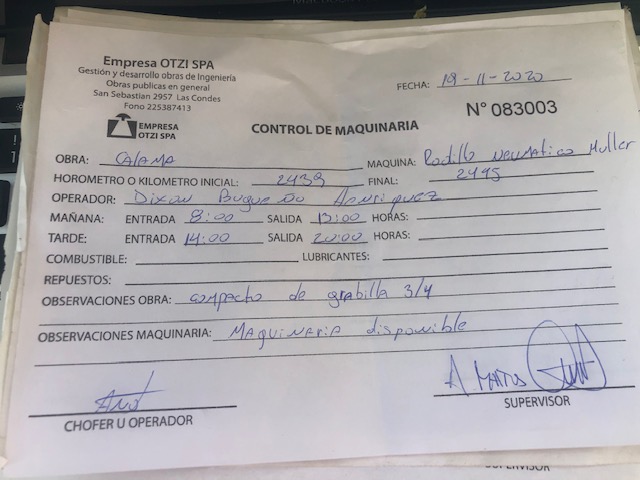 Empresa OTZI SPA
Gestión y desarrollo obras de Ingeniería
Obras publicas en general
San Sebastian 2957 Las Condes
Fono 225387413
FECHA: 19-11-2020
EMPRESA
OTZI SPA
CONTROL DE MAQUINARIA
N° 083003
OBRA: Calama MAQUINA: Rodillo Neumatico Muller
HOROMETRO O KILOMETRO INICIAL: 2439 FINAL: 2445
OPERADOR: Dixon Henriquez
MAÑANA: ENTRADA 8:00 SALIDA 13:00 HORAS:
TARDE: ENTRADA 14:00 SALIDA 20:00 HORAS:
COMBUSTIBLE: LUBRICANTES:
REPUESTOS:
OBSERVACIONES OBRA: de grabilla 3/4
OBSERVACIONES MAQUINARIA: Maquinaria disponible
CHOFER U OPERADOR
SUPERVISOR
SUPERVISOR